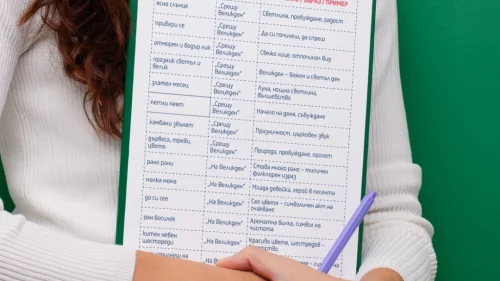 ОБРАЗ / ПРИМЕР
ясно слънце „Срещу Великден“ Светлина, пробуждане, радост
привери се „Срещу Великден“ Да си починеш, да спреш
отморен и бодър лик „Срещу Великден“ Свежо лице, отпочинал вид
празник светъл и велик „Срещу Великден“ Великден – важен и светъл ден
златен месец „Срещу Великден“ Луна, нощна светлина, вълшебство
петли пеят „Срещу Великден“ Начало на деня, събуждане
камбани звънят „Срещу Великден“ Празничност, църковен звук
дървета, треви, цветя „Срещу Великден“ Природа, пробуждане, пролет
рано рани „На Великден“ Става много рано – типичен фолклорен израз
малка мома „На Великден“ Млада девойка, герой в песента
да си сее „На Великден“ Сее цветя – символичен акт на очакване
ран босилек „На Великден“ Ароматна билка, символ на чистота
китен невен шестореди „На Великден“ Красиво цвете, шестредов –
„На Великден“